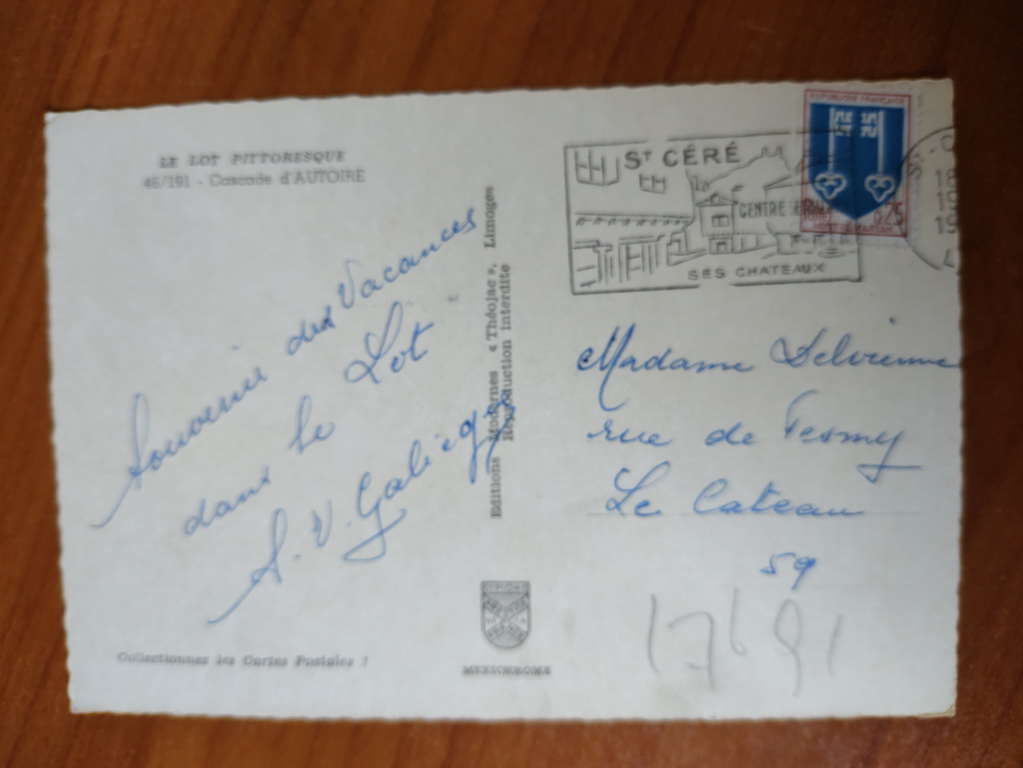 LE LOT PITTORESQUE
46/191 - Cascade d'AUTOIRE
Souvenir des Vacances
dans le Lot
Editions Modernes « Théojac », Limoges
Reproduction interdite
Collectionnez les Cartes Postales !
MEXICHROME
ST CÉRÉ
CENTRE
SES CHATEAUX
REPUBLIQUE FRANÇAISE
0,25
MONT-DE-MARSAN
18
19
Madame Delvienne
rue de Fesmy
Le Cateau
59
17691